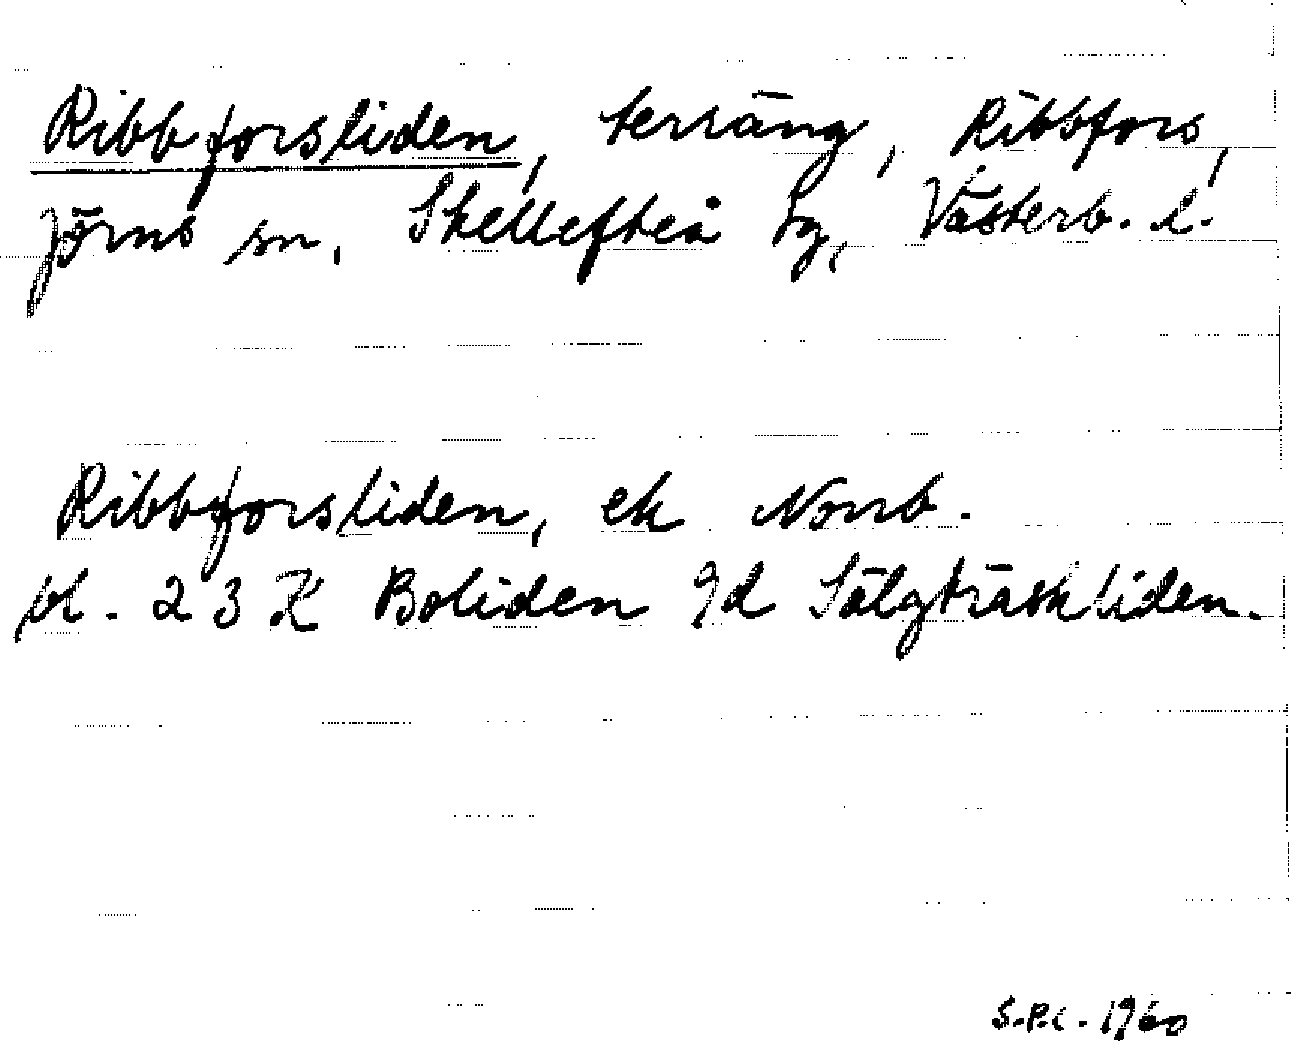 Ribbforsliden, terräng, Ribbfors,
Jörns sn, Skellefteå tg, Västerb. l.
Ribbforsliden, ek Norrb.
bl. 23 K Boliden 9d Sälgträskliden.
S.P.C. 1960